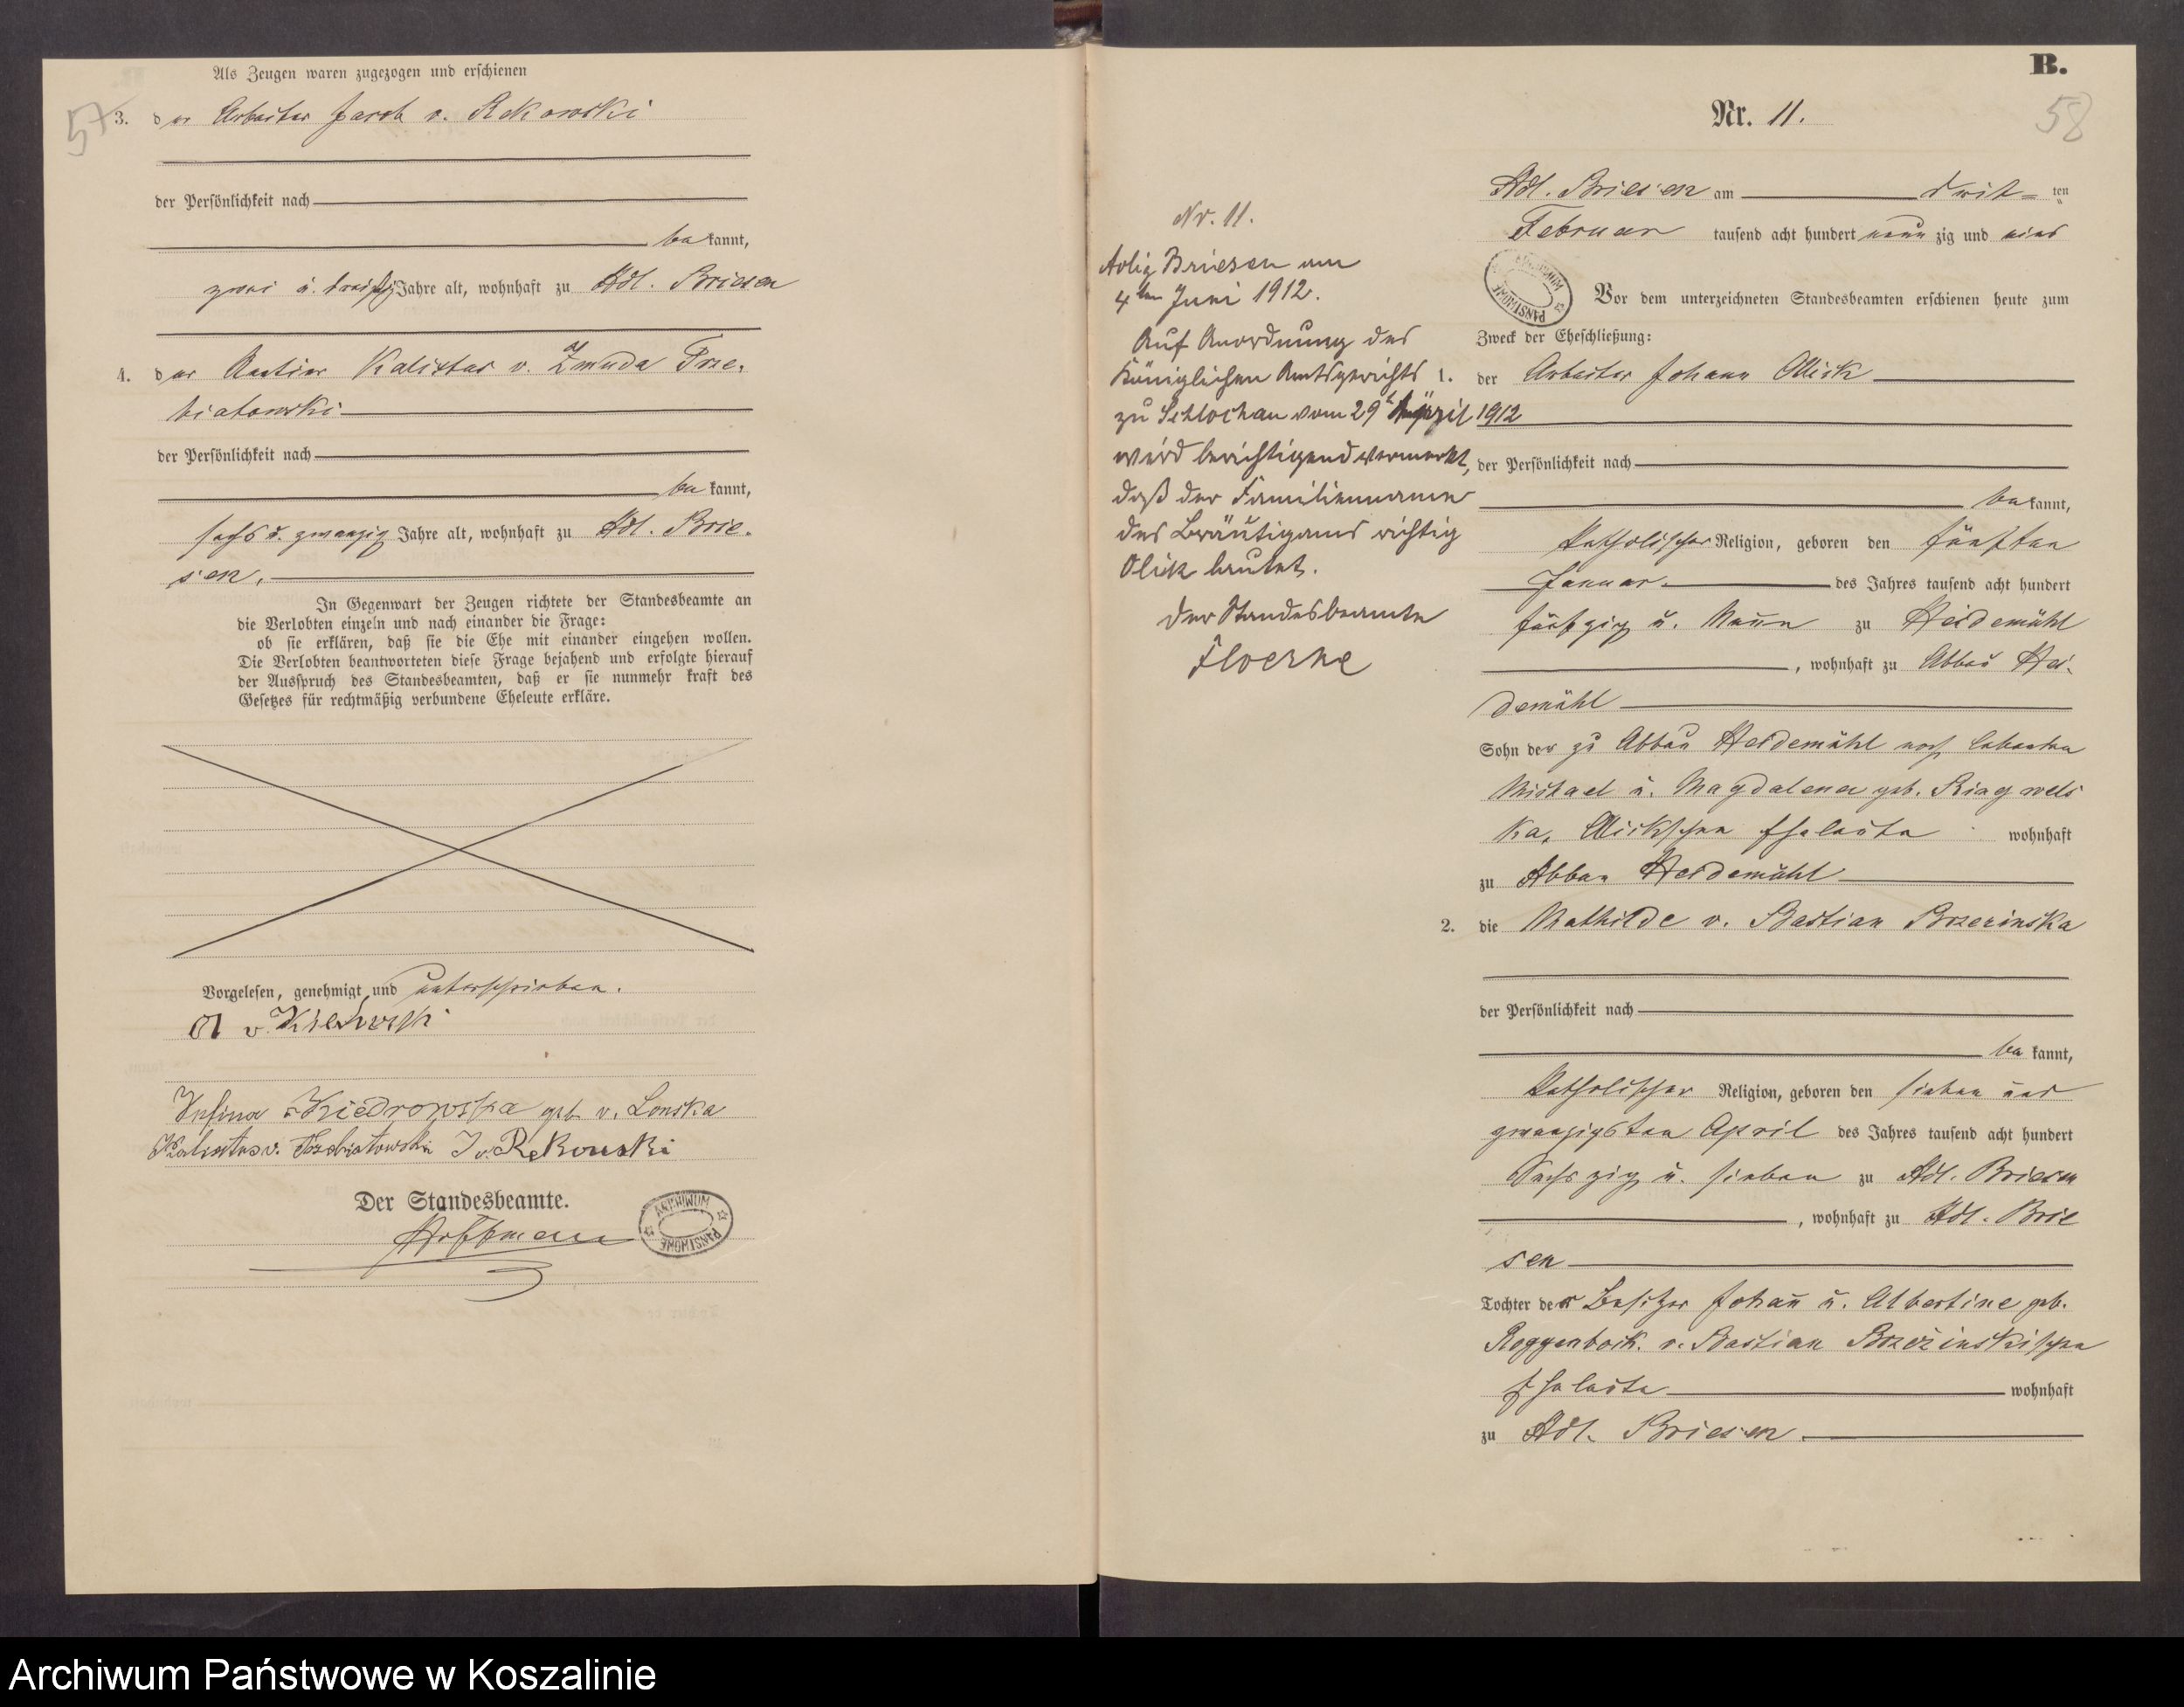 57
Als Zeugen waren zugezogen und erschienen
3. der Arbeiter Jacob v. Rekowski
der Persönlichkeit nach
be kannt,
zwei u. dreißig Jahre alt, wohnhaft zu Adl. Briesen
4. der Rentier Kalixtus v. Zmuda Trze-
biatowski
der Persönlichkeit nach
be kannt,
sechs u. zwanzig Jahre alt, wohnhaft zu Adl. Brie-
sen.
In Gegenwart der Zeugen richtete der Standesbeamte an
die Verlobten einzeln und nach einander die Frage:
ob sie erklären, daß sie die Ehe mit einander eingehen wollen.
Die Verlobten beantworteten diese Frage bejahend und erfolgte hierauf
der Ausspruch des Standesbeamten, daß er sie nunmehr kraft des
Gesetzes für rechtmäßig verbundene Eheleute erkläre.
Vorgelesen, genehmigt und unterschrieben.
v.
v. Kiedrowska geb. v. Lonska
Kalixtus v. Trzebiatowski J v. Rekowski
Der Standesbeamte.
Hoffmann
ARCHIWUM PAŃSTWOWE
B.
58
Nr. 11.
Adl. Briesen am drit= ten
Februar tausend acht hundert neun zig und eins
ARCHIWUM PAŃSTWOWE
Vor dem unterzeichneten Standesbeamten erschienen heute zum
Zweck der Eheschließung:
1. der Arbeiter Johann Ollick
der Persönlichkeit nach
be kannt,
katholischer Religion, geboren den fünften
Januar des Jahres tausend acht hundert
fünfzig u. Neun zu Heidemühl
, wohnhaft zu Abbau Hei-
demühl
Sohn der zu Abbau Heidemühl noch lebenden
Michael u. Magdalena geb.
Eheleute wohnhaft
zu Abbau Heidemühl
2. die Mathilde v. Bastian Brzezinska
der Persönlichkeit nach
be kannt,
katholischer Religion, geboren den sieben und
zwanzigsten April des Jahres tausend acht hundert
Sechs zig u. sieben zu Adl. Briesen
, wohnhaft zu Adl. Brie
sen
Tochter der Besitzer Johann u. Albertine geb.
Roggenbock v. Bastian Brzezinskischen
Eheleute wohnhaft
zu Adl. Briesen.
Nr. 11.
Adlig Briesen am
4ten Juni 1912.
Auf Anordnung des
Königlichen Amtsgerichts
zu Schlochau vom 29 April 1912
wird berichtigend vermerkt,
daß der Familienname
des Bräutigams richtig
Olik lautet.
Der Standesbeamte
Floerke
Archiwum Państwowe w Koszalinie